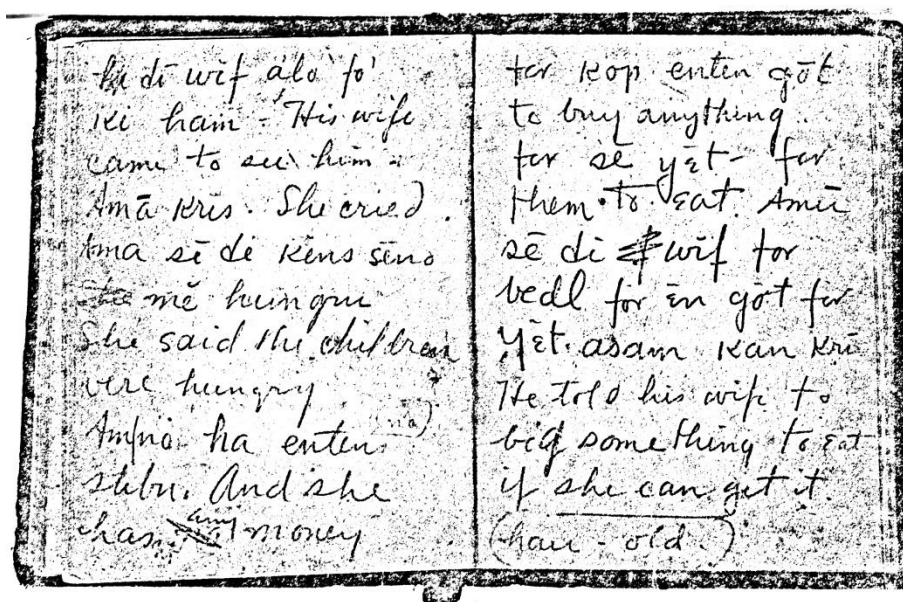 di wif álo fo'
ki ham - His wife
came to see him -
Amā Kris. She cried.
Ama sē de Kens sēno
mē hungru
She said the children
were hungry
(na)
Amna ha enten
stibu. And she
has any money
for Kop enten gōt
to buy anything.
for sē yēt - for
them to eat. Amū
sē di wif for
bedl for ēn gōt for
yēt. asam kan kri
He told his wife to
beg something to eat
if she can get it.
(hau - old.)